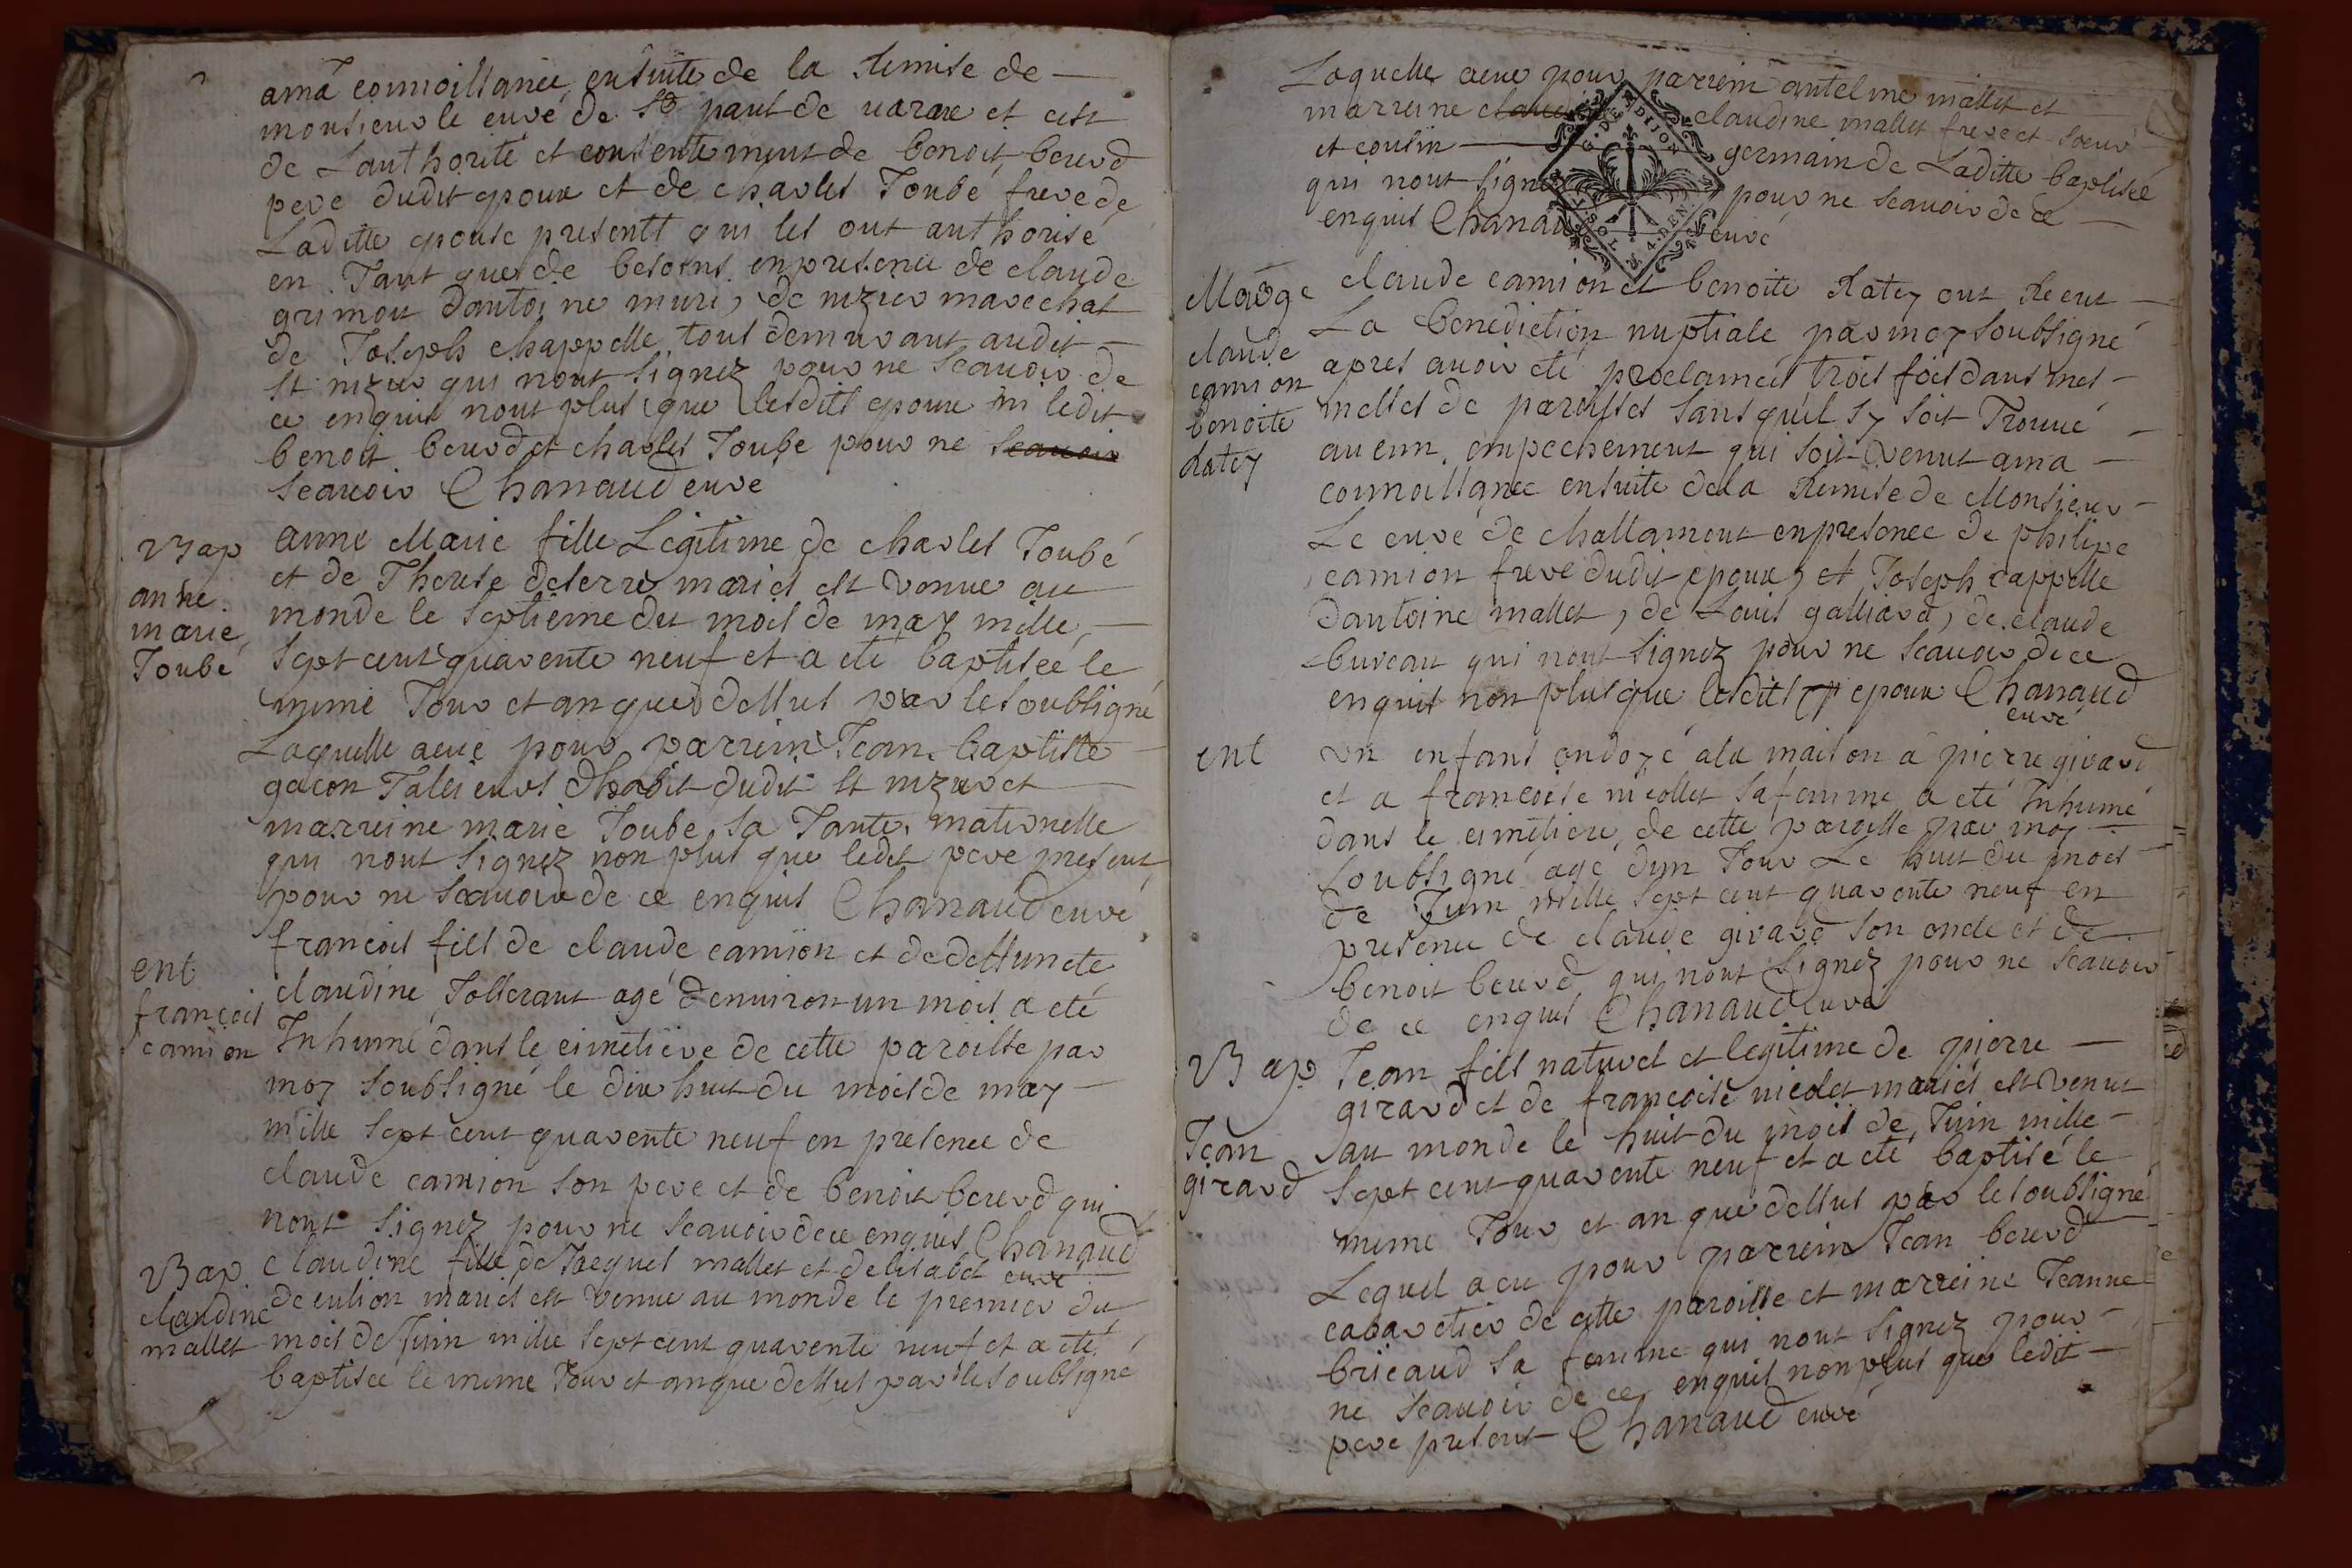 ama connoissance ensuite de la Remise de
monsieur le curé de St paul de varax et cest
de Lauthorité et consentement de benoit beurd
pere dudit epoux et de charles Joubé frere de
Laditte epouse presents qui les ont authorisé
en Tant que de besoins en presence de claude
grimon dantoine muri, de nizier marechal
de Joseph chappelle tous demeurant audit
St nizier qui nont signez pour ne scauoir de
ce enquis nont plus que lesdits epoux ni ledit
benoit beurd et charles Joube pour ne scauoir
scauoir Chanaud curé
Bap
anne
marie
Joubé
anne Marie fille Legitime de charles Joubé
et de Therese deserre mariés est venue au
monde le septieme du mois de may mille
sept cent quarente neuf et a eté baptisée le
mime Jour et an que dessus par le soubsigné
Laquelle a eue pour parrein Jean baptiste
gacon dhabit dudit St nizier et
marreine marie Joube sa Tante maternelle
qui nont signez non plus que ledit pere present
pour ne scauoir de ce enquis Chanaud curé
ent
françois
camion
francois fils de claude camion et de deffuncte
claudine Josserant agé denuiron un mois a eté
Inhumé dans le cimetiere de cette paroisse par
moy soubsigné le dix huit du mois de may
mille sept cent quarente neuf en presence de
claude camion son pere et de benoit beurd qui
nont signez pour ne scauoir de ce enquis Chanaud
curé
Bap
claudine
mallet
claudine fille de Jacques mallet et delisabet
mariés est venue au monde le premier du
mois de Juin mille sept cent quarente neuf et a eté
baptisée le mime Jour et an que dessus par le soubsigné
Laquelle a eue pour parrein antelme mallet et
marreine claudine claudine mallet frere et soeur
et cousin germain de Laditte baptisée
qui nont signé pour ne scauoir de ce
enquis Chanaud curé
G. DE DIJON
SOLS 4 DEN.
Maoge
claude
camion
benoite
Ratey
claude camion et benoite Ratey ont Receut
La benediction nuptiale par moy soubsigné
apres auoir eté proclamées trois fois dans mes
messes de paroisses sans quil sy soit Trouué
aucun empechement qui soit venut ama
connoissance ensuite dela Remise de Monsieur
Le curé de challamont en presence de philipe
camion frere dudit epoux, et Joseph cappelle
dantoine mallet, de Louis galliard, de claude
bureau qui nont signez pour ne scauoir de ce
enquis non plus que lesdits epoux Chanaud
curé
ent
un enfant ondoyé ala maison a pierre girard
et a francoise nicollet sa femme a eté Inhumé
dans le cimetiere de cette paroisse par moy
soubsigné agé dun Jour Le huit du mois
de Juin mille sept cent quarente neuf en
presence de claude girard son oncle et de
benoit beurd qui nont signez pour ne scauoir
de ce enquis Chanaud curé
Bap
Jean
girard
Jean fils naturel et legitime de pierre
girard et de francoise nicolet mariés est venut
au monde le huit du mois de Juin mille
sept cent quarente neuf et a eté baptisé le
mime Jour et an que dessus par le soubsigné
Lequel a eu pour parrein Jean beurd
cabaretier de cette paroisse et marreine Jeanne
bricaud sa femme qui nont signez pour
ne scauoir de ce enquis non plus que ledit
pere present Chanaud curé